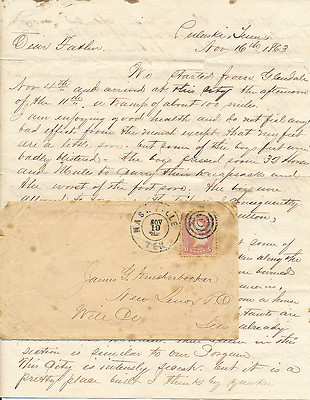 Pulaski Tenn
Nov 16th 1863
Dear Father
We started from Glendale
Nov 4th and arrived at this city the afternoon
of the 11th. a tramp of about 100 miles.
I am enjoying good health and do not feel any
bad effects from the march except that my feet
are a little sore. but some of the boys feet were
badly blistered. the boys pressed some 30 Horses
and Mules to carry their knapsacks and
the worst of the foot sore. The boys were
consequently
NASHVILLE
NOV
19
TEN.
some of
along the
burned
James G. Knickerbocker
from a house
New Lenox P.O
Will Co
Ills
already
in this
section is similar to our
This City is intensely secesh. but it is a
pretty place built I think by